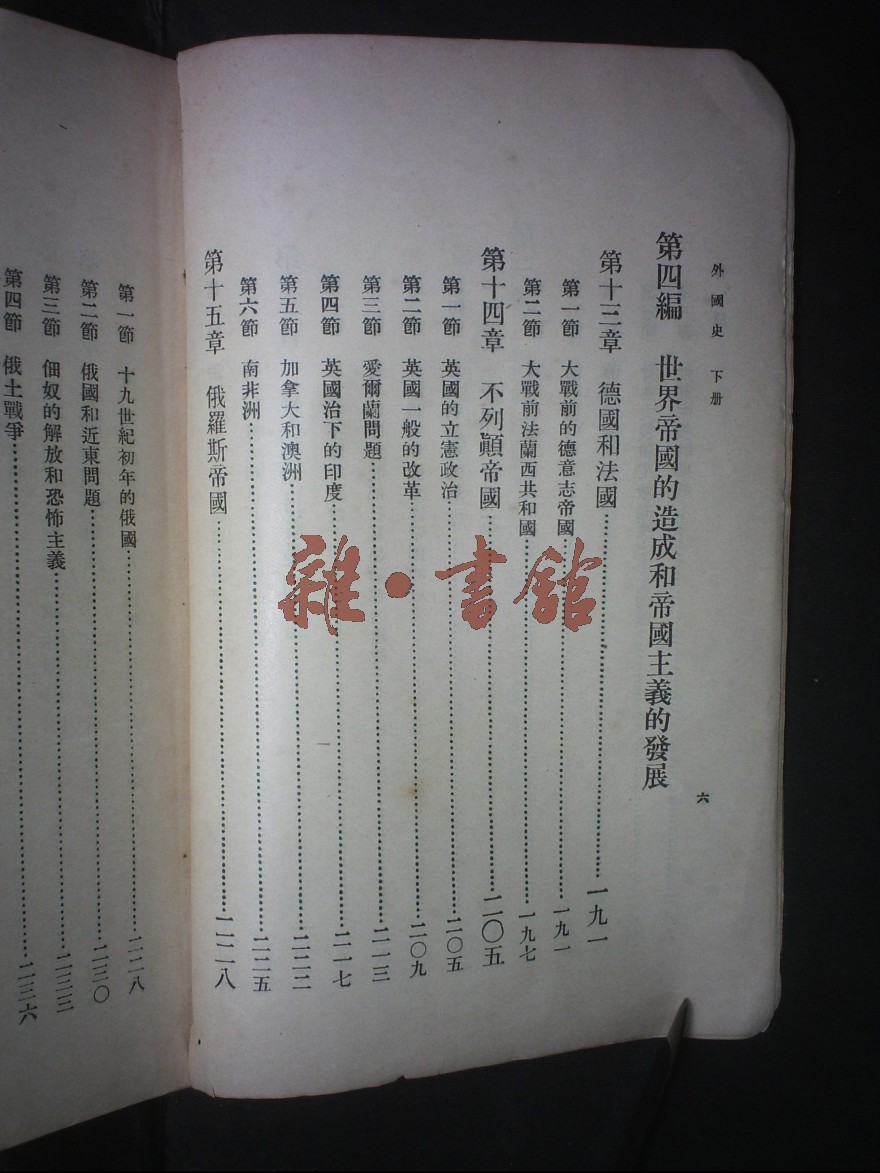 外國史 下册
六
第四編 世界帝國的造成和帝國主義的發展
第十三章 德國和法國……一九一
第一節 大戰前的德意志帝國……一九一
第二節 大戰前法蘭西共和國……一九七
第十四章 不列顚帝國……二〇五
第一節 英國的立憲政治……二〇五
第二節 英國一般的改革……二〇九
第三節 愛爾蘭問題……二一三
第四節 英國治下的印度……二一七
第五節 加拿大和澳洲……二二二
第六節 南非洲……二二五
第十五章 俄羅斯帝國……二二八
第一節 十九世紀初年的俄國……二二八
第二節 俄國和近東問題……二三〇
第三節 佃奴的解放和恐怖主義……二三三
第四節 俄土戰爭……二三六
雜·書館